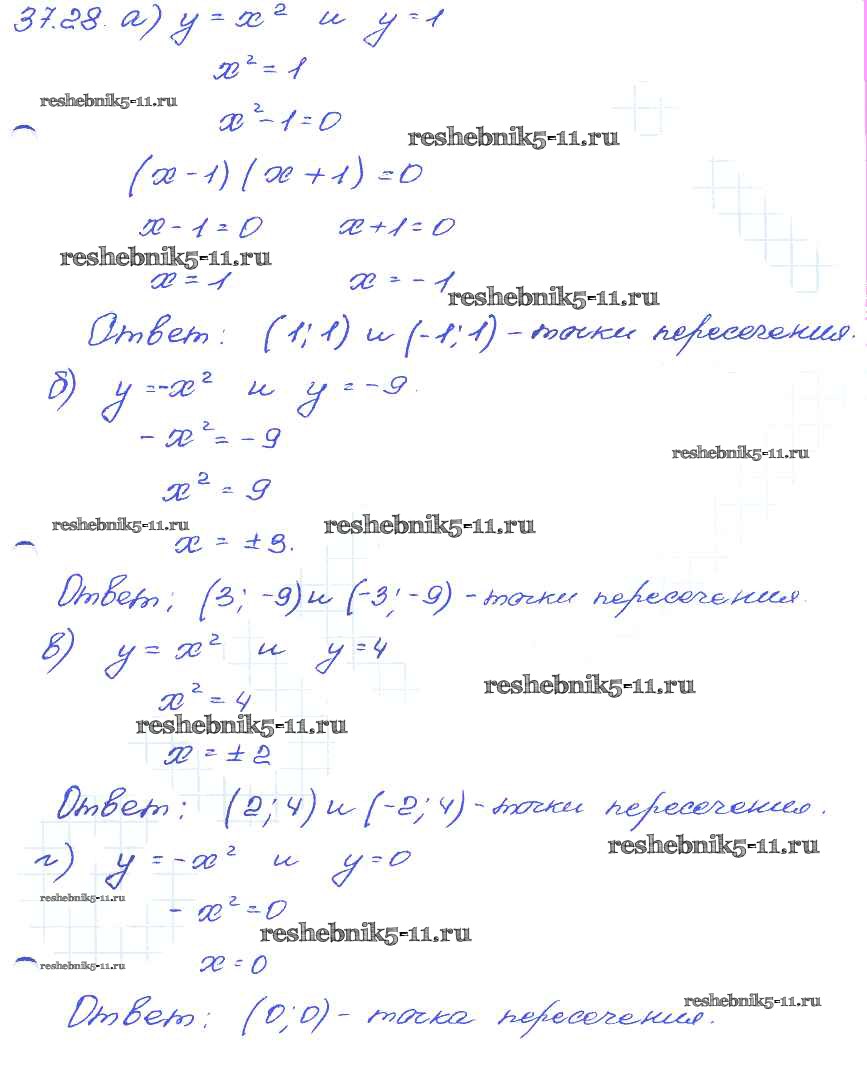 37.28. а) y = x² и y = 1
x² = 1
reshebnik5-11.ru
x² - 1 = 0
reshebnik5-11.ru
(x - 1)(x + 1) = 0
x - 1 = 0 x + 1 = 0
reshebnik5-11.ru
x = 1 x = - 1
reshebnik5-11.ru
Ответ: (1; 1) и (-1; 1) - точки пересечения.
б) y = -x² и y = -9.
- x² = - 9
reshebnik5-11.ru
x² = 9
reshebnik5-11.ru reshebnik5-11.ru
x = ± 3.
Ответ; (3; -9) и (-3; -9) - точки пересечения.
в) y = x² и y = 4
reshebnik5-11.ru
x² = 4
reshebnik5-11.ru
x = ± 2
Ответ: (2; 4) и (-2; 4) - точки пересечения.
reshebnik5-11.ru
г) y = -x² и y = 0
reshebnik5-11.ru
- x² = 0
reshebnik5-11.ru
x = 0
reshebnik5-11.ru
reshebnik5-11.ru
Ответ: (0; 0) - точка пересечения.